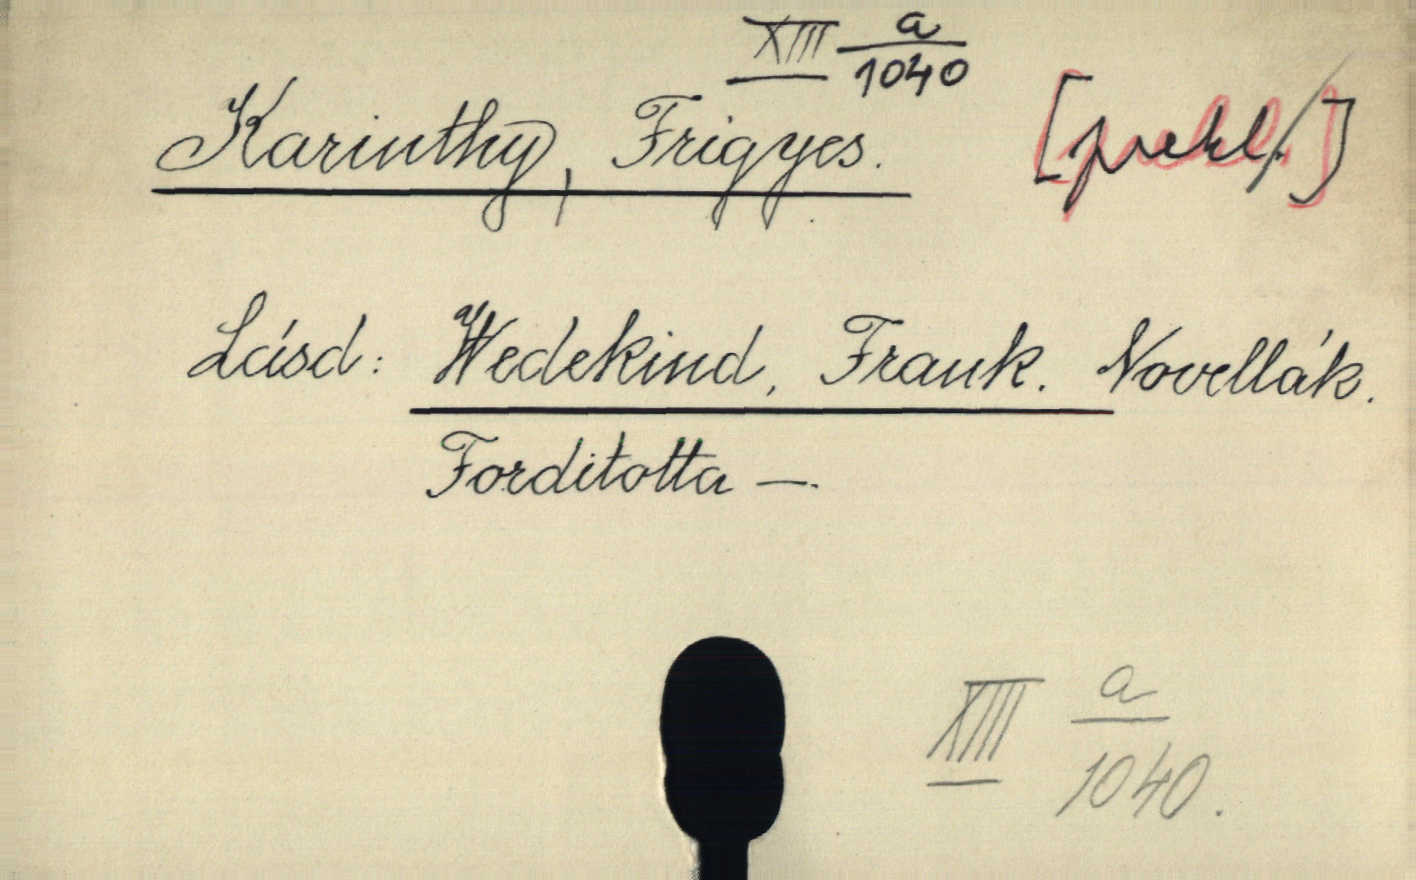 XIII a/1040
Karinthy, Frigyes. [prekl.]
Lásd: Wedekind, Frank. Novellák.
Forditotta —.
XIII a/1040.